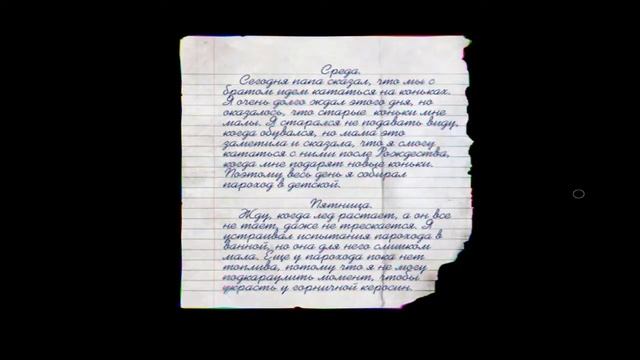 Среда.
Сегодня папа сказал, что мы с
братом идем кататься на коньках.
Я очень долго ждал этого дня, но
оказалось, что старые коньки мне
малы. Я старался не подавать виду,
когда обувался, но мама это
заметила и сказала, что я смогу
кататься с ними после Рождества,
когда мне подарят новые коньки.
Поэтому весь день я собирал
пароход в детской.
Пятница.
Жду, когда лед растает, а он все
не тает, даже не трескается. Я
устраивал испытания парохода в
ванной, но она для него слишком
мала. Еще у парохода пока нет
топлива, потому что я не могу
подкараулить момент, чтобы
украсть у горничной керосин.